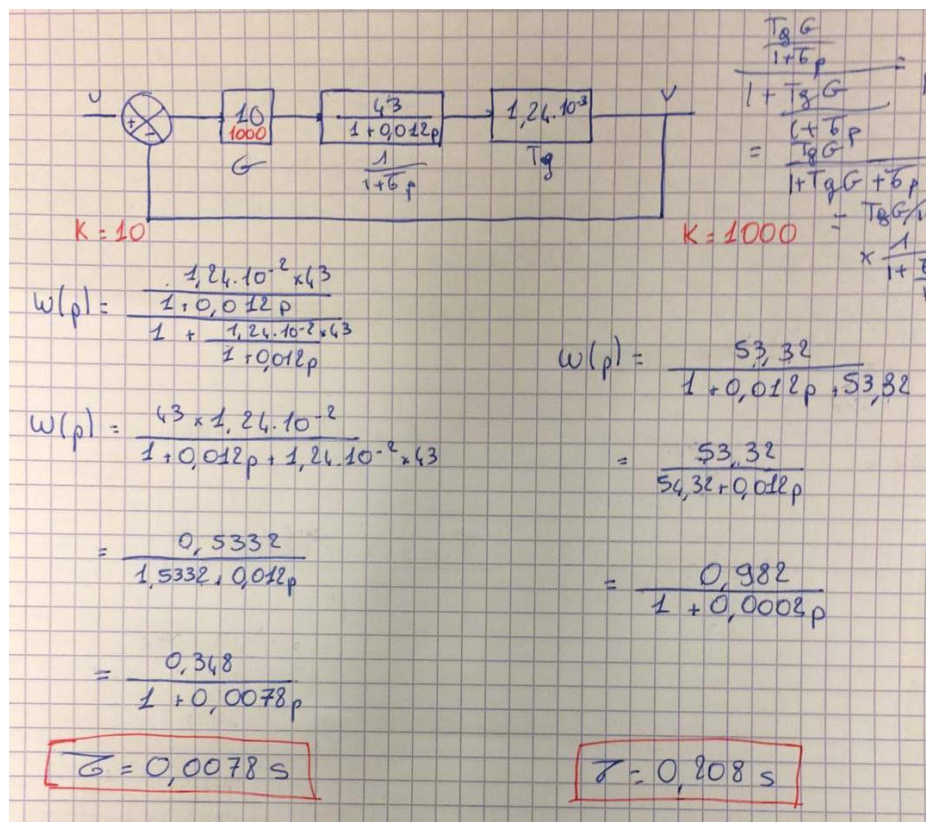 U + - 10 1000 43 / 1+0,012p 1,24.10⁻³ V
G 1 / 1+τp Tg
K = 10 K = 1000
TgG / 1+τp / 1 + TgG / 1+τp =
= TgG / 1+TgG+τp
= TgG/
× 1 / 1+
W(p) = 1,24.10⁻² × 43 / 1+0,012p / 1 + 1,24.10⁻² × 43 / 1+0,012p
W(p) = 43 × 1,24.10⁻² / 1+0,012p + 1,24.10⁻² × 43
= 0,5332 / 1,5332 + 0,012p
= 0,348 / 1 + 0,0078p
τ = 0,0078 s
W(p) = 53,32 / 1 + 0,012p + 53,32
= 53,32 / 54,32 + 0,012p
= 0,982 / 1 + 0,0002p
τ = 0,208 s